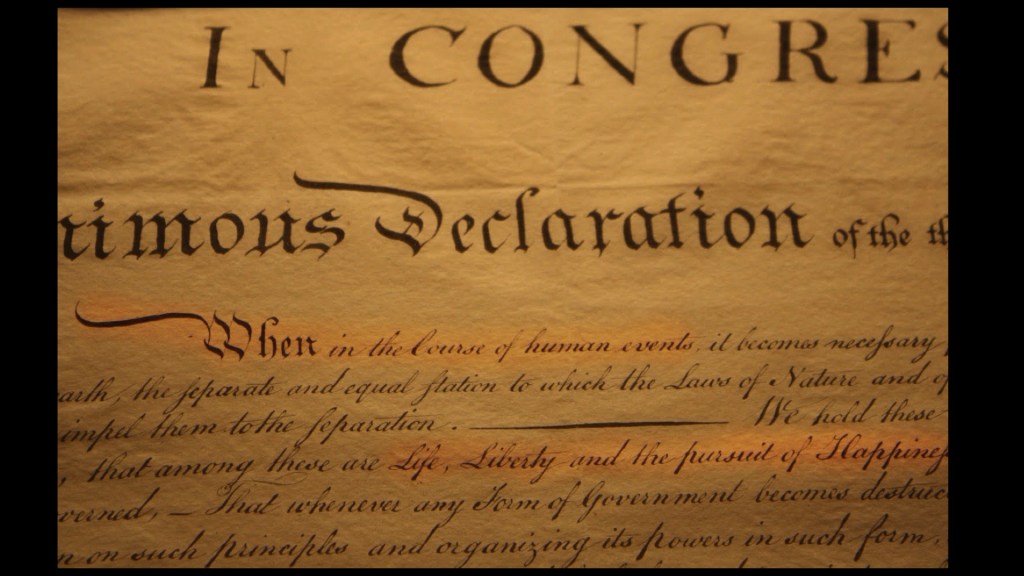 IN CONGRES
nimous Declaration of the th
When in the Course of human events, it becomes neceſsary
earth, the ſeparate and equal ſtation to which the Laws of Nature and of
impel them to the ſeparation. ——— We hold these
, that among these are Life, Liberty and the pursuit of Happineſ
verned, — That whenever any Form of Government becomes destruc
n on such principles and organizing its powers in such form,